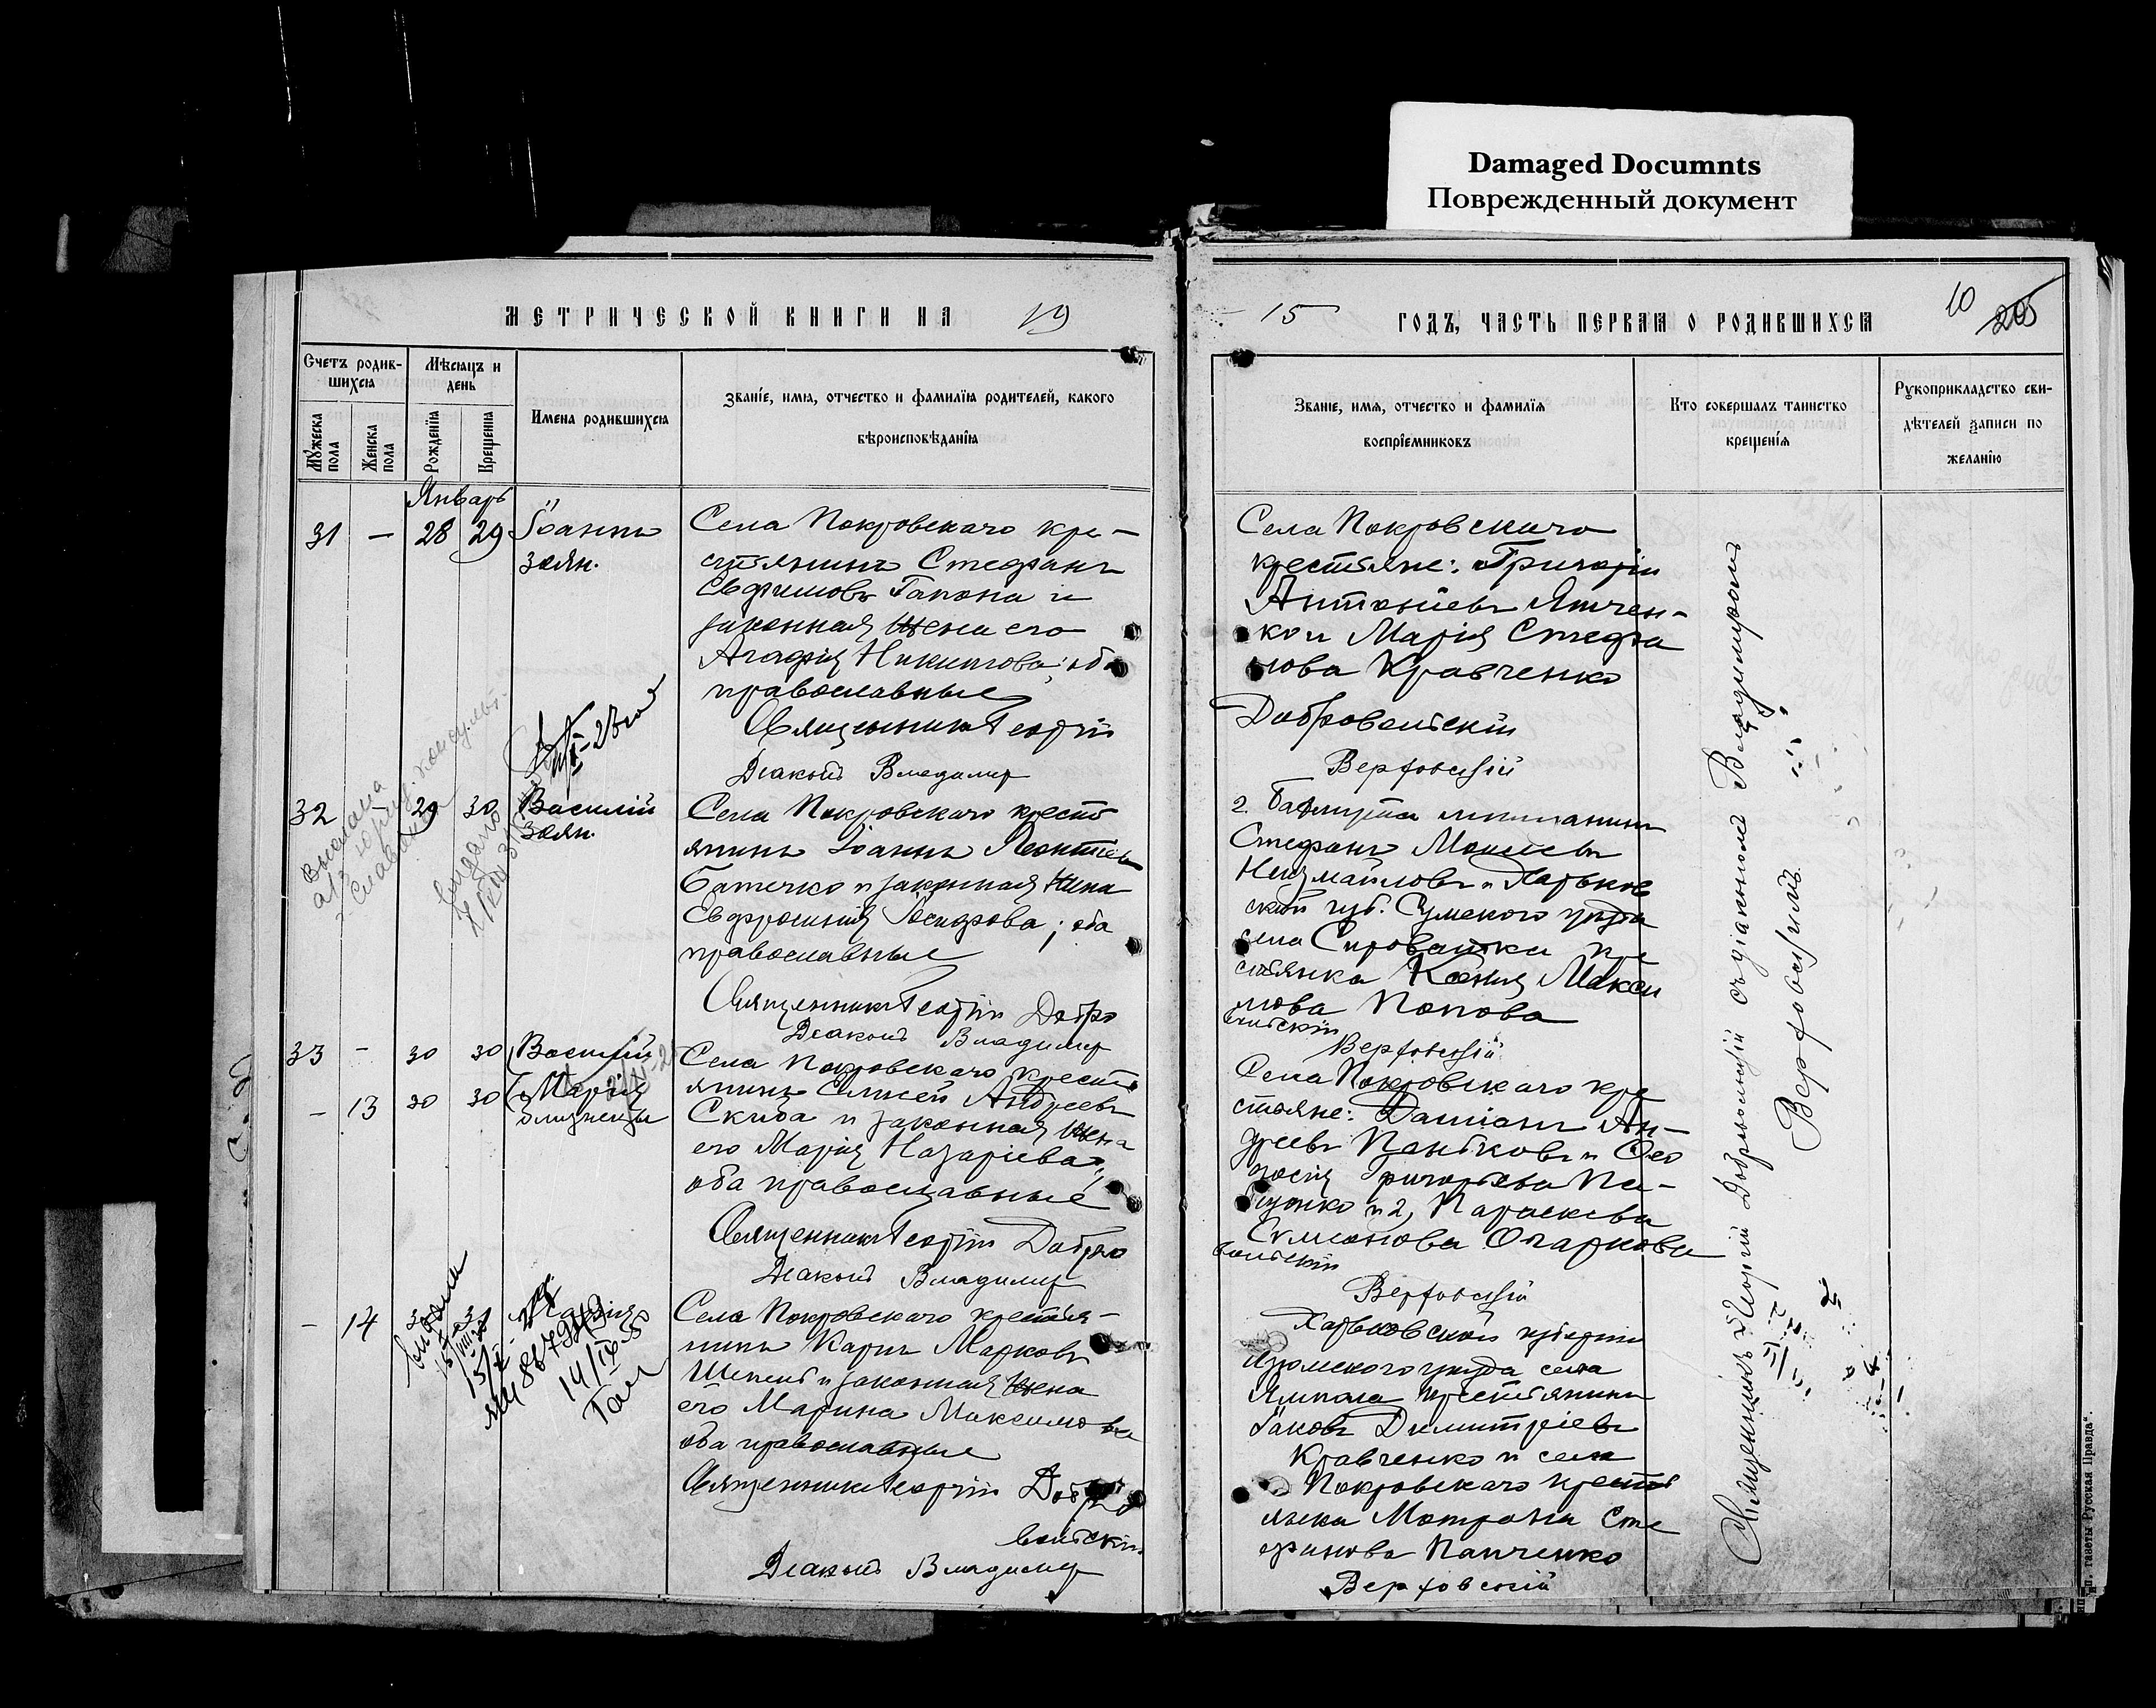 Damaged Documnts
Поврежденный документ
МЕТРИЧЕСКОЙ КНИГИ НА 19
15 ГОДЪ, ЧАСТЬ ПЕРВАЯ О РОДИВШИХСЯ
10 205
Счетъ родив-
шихся
Мѣсяцъ и
день
Мужеска пола
Женска пола
Рожденія
Крещенія
Имена родившихся
Званіе, имя, отчество и фамилія родителей, какого
вѣроисповѣданія
Званіе, имя, отчество и фамилія
воспріемниковъ
Кто совершалъ таинство
крещенія
Рукоприкладство сви-
дѣтелей записи по
желанію
Январь
31 – 28 29 Іоаннъ
Села Покровскаго кре-
стьянинъ Стефанъ
Евфимовъ Гапона и
законная жена его
Агафія Никитова; оба
православные
Священникъ Георгій
Діаконъ Владимир
Села Покровскаго
крестьяне: Григорій
Антоніевъ Ятчен-
ко и Марія Стефа
нова Кравченко
Добровольскій
Верховскій
32 29 30 Василій
Села Покровскаго крест
янинъ Іоаннъ Леонтіевъ
Батечко и законная жена
Евфросинія Іосифова; оба
православные
Священникъ Георгій Добро
Діаконъ Владимир
г. Бахмута мѣщанинъ
Стефанъ Моисеевъ
и Харьков
ской губ. Сумскаго уѣзда
села Сыроватки кре
стьянка Ксенія Макси
мова Попова
вольскій
Верховскій
33 – 30 30 Василій
– 13 30 30 Марія
близнецы
Села Покровскаго кресть
янинъ Елисей Андреевъ
Скиба и законная жена
его Марія Назаріева;
оба православные
Священникъ Георгій Добро
Діаконъ Владимир
Села Покровскаго кре
стьяне: Даміанъ Ан-
дреевъ Пеньковъ и Ѳео
досія Григорьева
и 2, Параскева
Симонова Опаркова
вольскій
Верховскій
– 14
Села Покровскаго крестья-
нинъ Карпъ Марковъ
Шепель и законная жена
его Марина Максимова
оба православные
Священникъ Георгій Добро
вольскій
Діаконъ Владимир
Харьковской губерніи
Изюмскаго уѣзда села
Ямполя крестьянинъ
Іаковъ Димитріевъ
Кравченко и села
Покровскаго кресть
янка Матрона Сте
фанова Панченко
Верховскій
Священникъ Георгій Добровольскій съ діакономъ Владиміромъ
Верховскимъ
14/IX-55
газеты Русская Правда“.